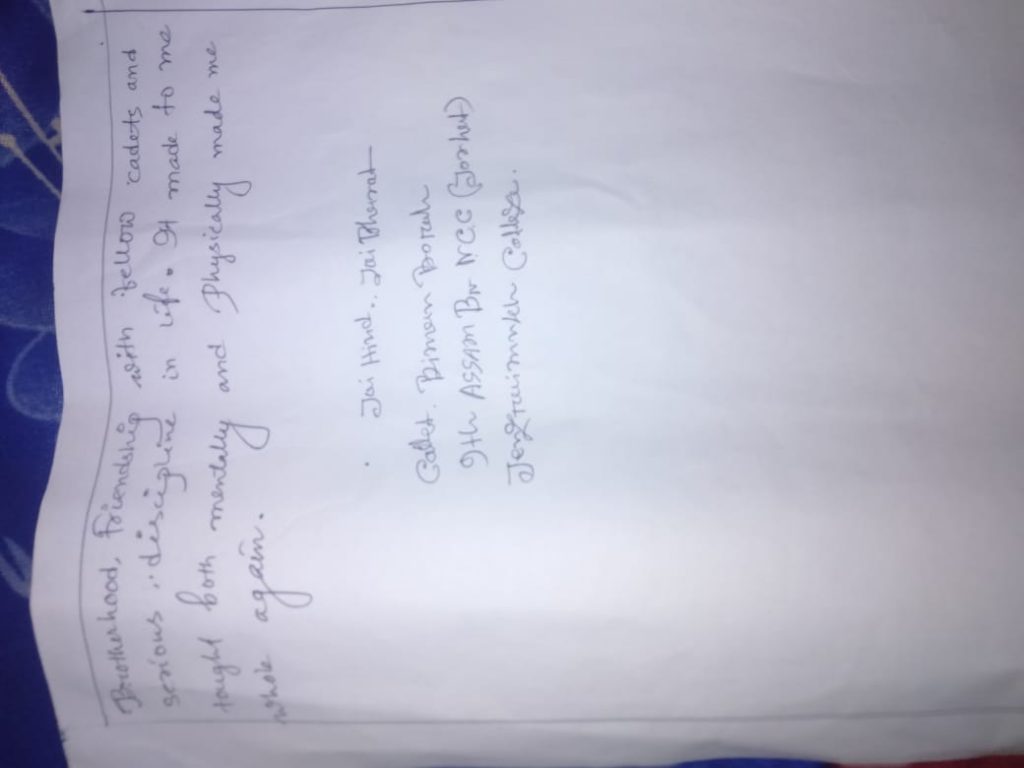 Brotherhood, Friendship with fellow cadets and
serious discipline in life. It made to me
tought both mentally and Physically made me
whole again.
Jai Hind.. Jai Bharat
Cadet. Biman Borah
9th ASSAM Bn NCC (Jorhat)
College.